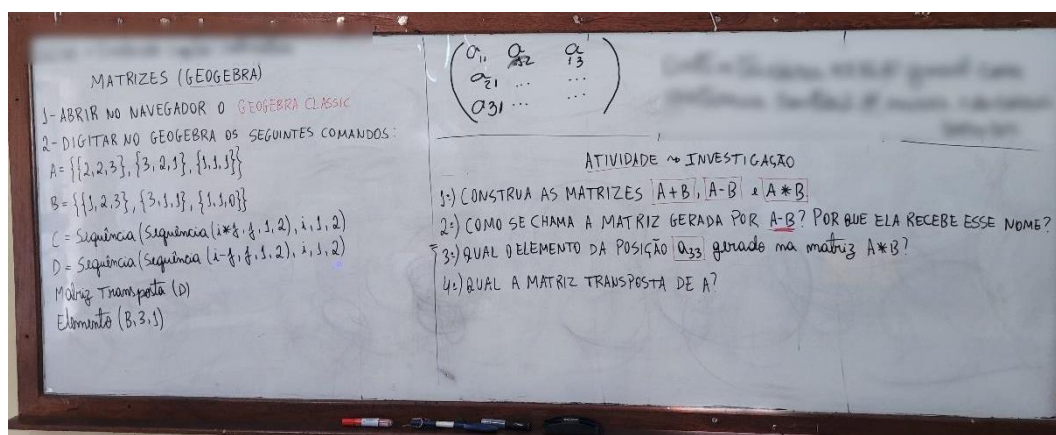 MATRIZES (GEOGEBRA)
1- ABRIR NO NAVEGADOR O GEOGEBRA CLASSIC
2- DIGITAR NO GEOGEBRA OS SEGUINTES COMANDOS:
A = {{2,2,3}, {3,2,1}, {1,1,1}}
B = {{1,2,3}, {3,1,1}, {1,1,0}}
C = Sequência (Sequência (i*j, j, 1, 2), i, 1, 2)
D = Sequência (Sequência (i-j, j, 1, 2), i, 1, 2)
Matriz Transposta (D)
Elemento (B, 3, 1)
a11 a12 a13
a21 ... ...
a31 ... ...
ATIVIDADE ~ INVESTIGAÇÃO
1º) CONSTRUA AS MATRIZES A+B, A-B e A*B
2º) COMO SE CHAMA A MATRIZ GERADA POR A-B? POR QUE ELA RECEBE ESSE NOME?
3º) QUAL O ELEMENTO DA POSIÇÃO a33 gerado na matriz A*B?
4º) QUAL A MATRIZ TRANSPOSTA DE A?